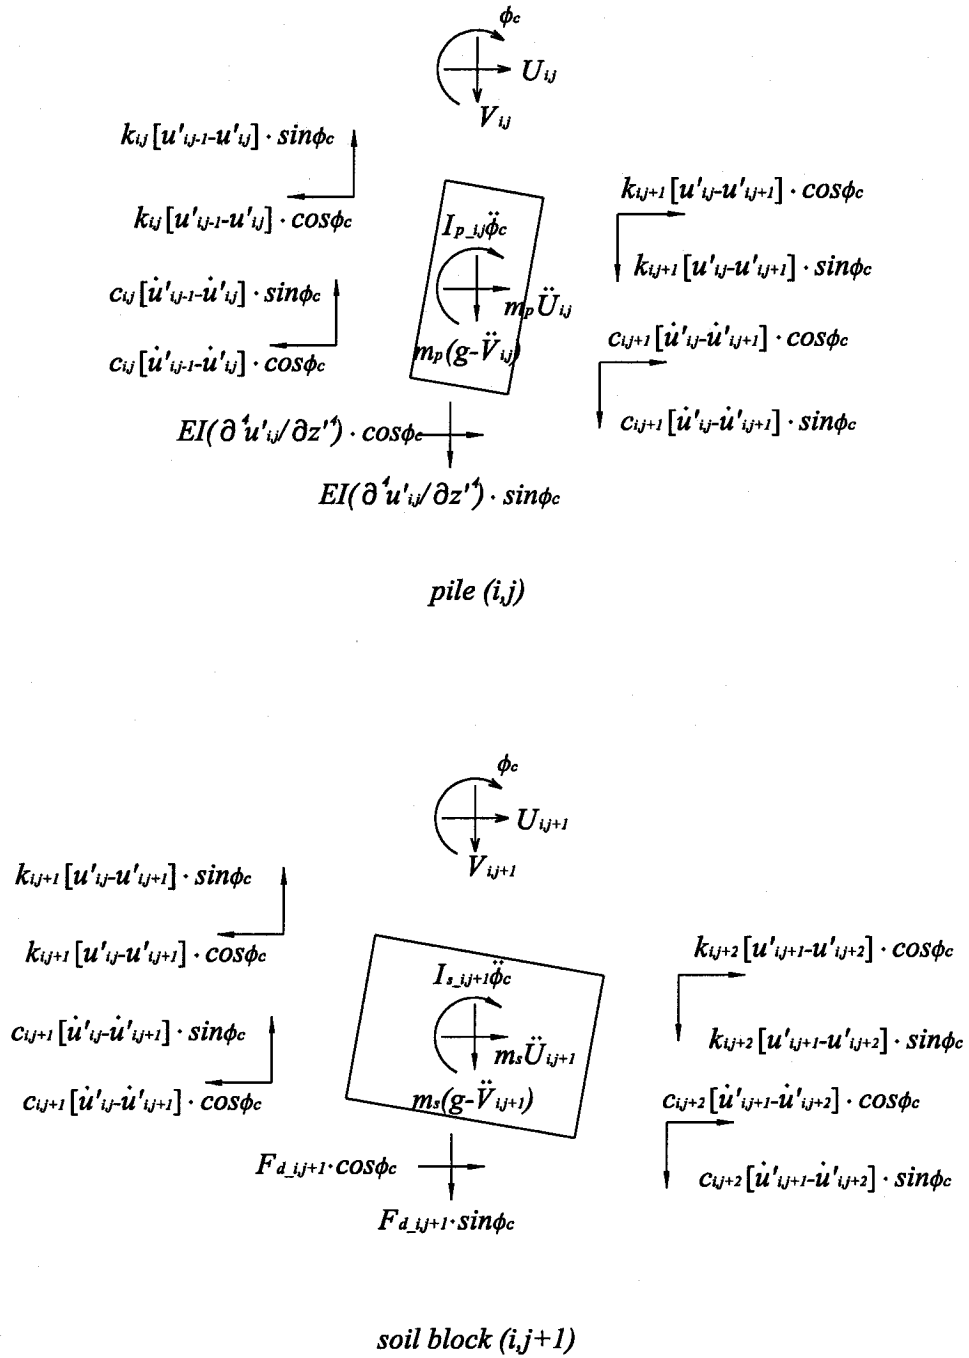 ϕc
Ui,j
Vi,j
ki,j[u'i,j-1-u'i,j]·sinϕc
ki,j[u'i,j-1-u'i,j]·cosϕc
ci,j[u̇'i,j-1-u̇'i,j]·sinϕc
ci,j[u̇'i,j-1-u̇'i,j]·cosϕc
Ip_i,jϕ̈c
mpÜi,j
mp(g-V̈i,j)
ki,j+1[u'i,j-u'i,j+1]·cosϕc
ki,j+1[u'i,j-u'i,j+1]·sinϕc
ci,j+1[u̇'i,j-u̇'i,j+1]·cosϕc
ci,j+1[u̇'i,j-u̇'i,j+1]·sinϕc
EI(∂⁴u'i,j/∂z'⁴)·cosϕc
EI(∂⁴u'i,j/∂z'⁴)·sinϕc
pile (i,j)
ϕc
Ui,j+1
Vi,j+1
ki,j+1[u'i,j-u'i,j+1]·sinϕc
ki,j+1[u'i,j-u'i,j+1]·cosϕc
ci,j+1[u̇'i,j-u̇'i,j+1]·sinϕc
ci,j+1[u̇'i,j-u̇'i,j+1]·cosϕc
Is_i,j+1ϕ̈c
msÜi,j+1
ms(g-V̈i,j+1)
ki,j+2[u'i,j+1-u'i,j+2]·cosϕc
ki,j+2[u'i,j+1-u'i,j+2]·sinϕc
ci,j+2[u̇'i,j+1-u̇'i,j+2]·cosϕc
ci,j+2[u̇'i,j+1-u̇'i,j+2]·sinϕc
Fd_i,j+1·cosϕc
Fd_i,j+1·sinϕc
soil block (i,j+1)